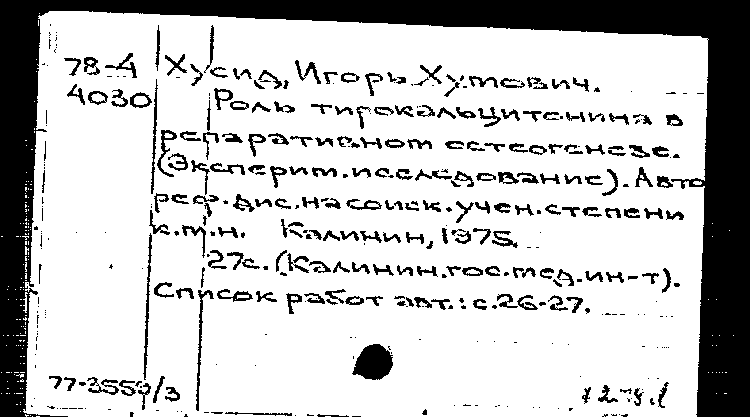 78-4 Хусид, Игорь Хутович.
4030 Роль тирокальцитонина в
репаративном остеогенезе.
(Эксперим. исследование). Авто
реф. дис. на соиск. учен. степени
к.м.н. Калинин, 1975.
27с. (Калинин. гос. мед. ин-т).
Список работ авт.: с. 26-27.
77-3559/3